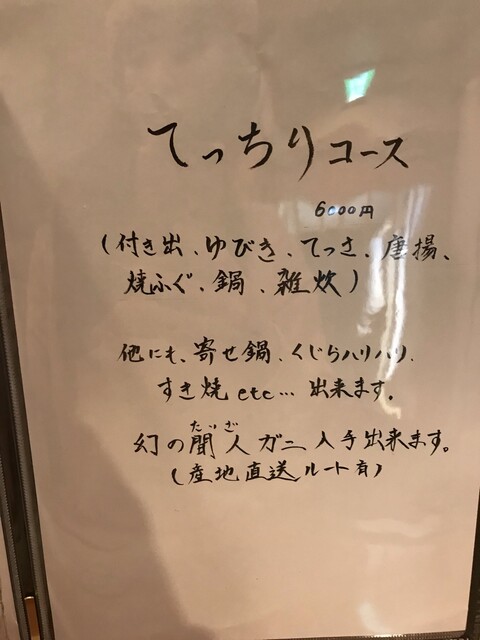 てっちりコース
6000円
(付き出、ゆびき、てっさ、唐揚、
焼ふぐ、鍋、雑炊)
他にも、寄せ鍋、くじらハリハリ、
すき焼etc… 出来ます。
たいざ
幻の間人ガニ入手出来ます。
(産地直送ルート有)